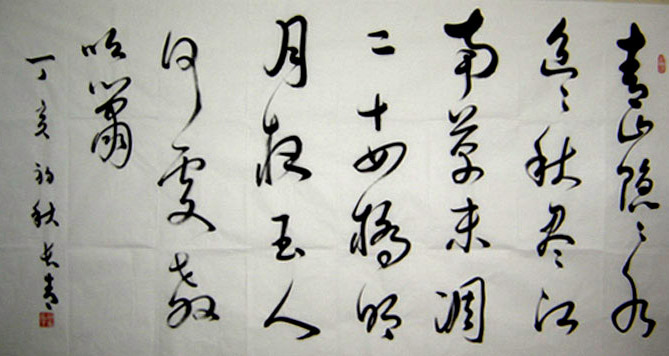 青山隐〻水
迢〻秋尽江
南草未凋
二十四橋明
月夜玉人
何處教
吹簫
丁亥初秋长青